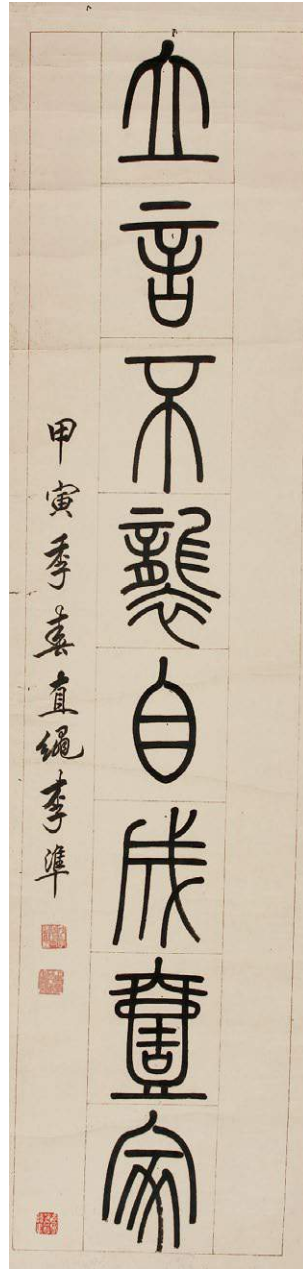 立言不襲自成壹家
甲寅季春直繩李準